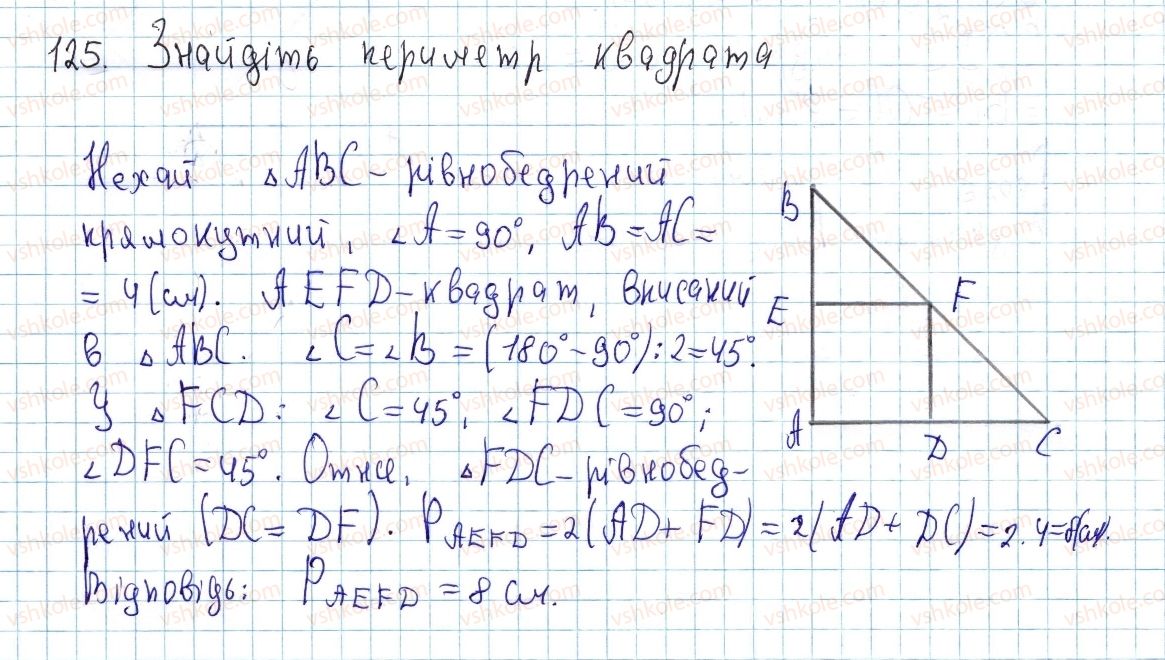 125. Знайдіть периметр квадрата
Нехай △ABC – рівнобедрений
прямокутний, ∠A = 90°, AB = AC =
= 4 (см). AEFD – квадрат, вписаний
в △ABC. ∠C = ∠B = (180° – 90°) : 2 = 45°.
У △FCD: ∠C = 45°, ∠FDC = 90°;
∠DFC = 45°. Отже, △FDC – рівнобед-
рений (DC = DF). P AEFD = 2(AD + FD) = 2(AD + DC) = 2 · 4 = 8(см).
Відповідь: P AEFD = 8 см.
B
E
F
A
D
C
vshkole.com